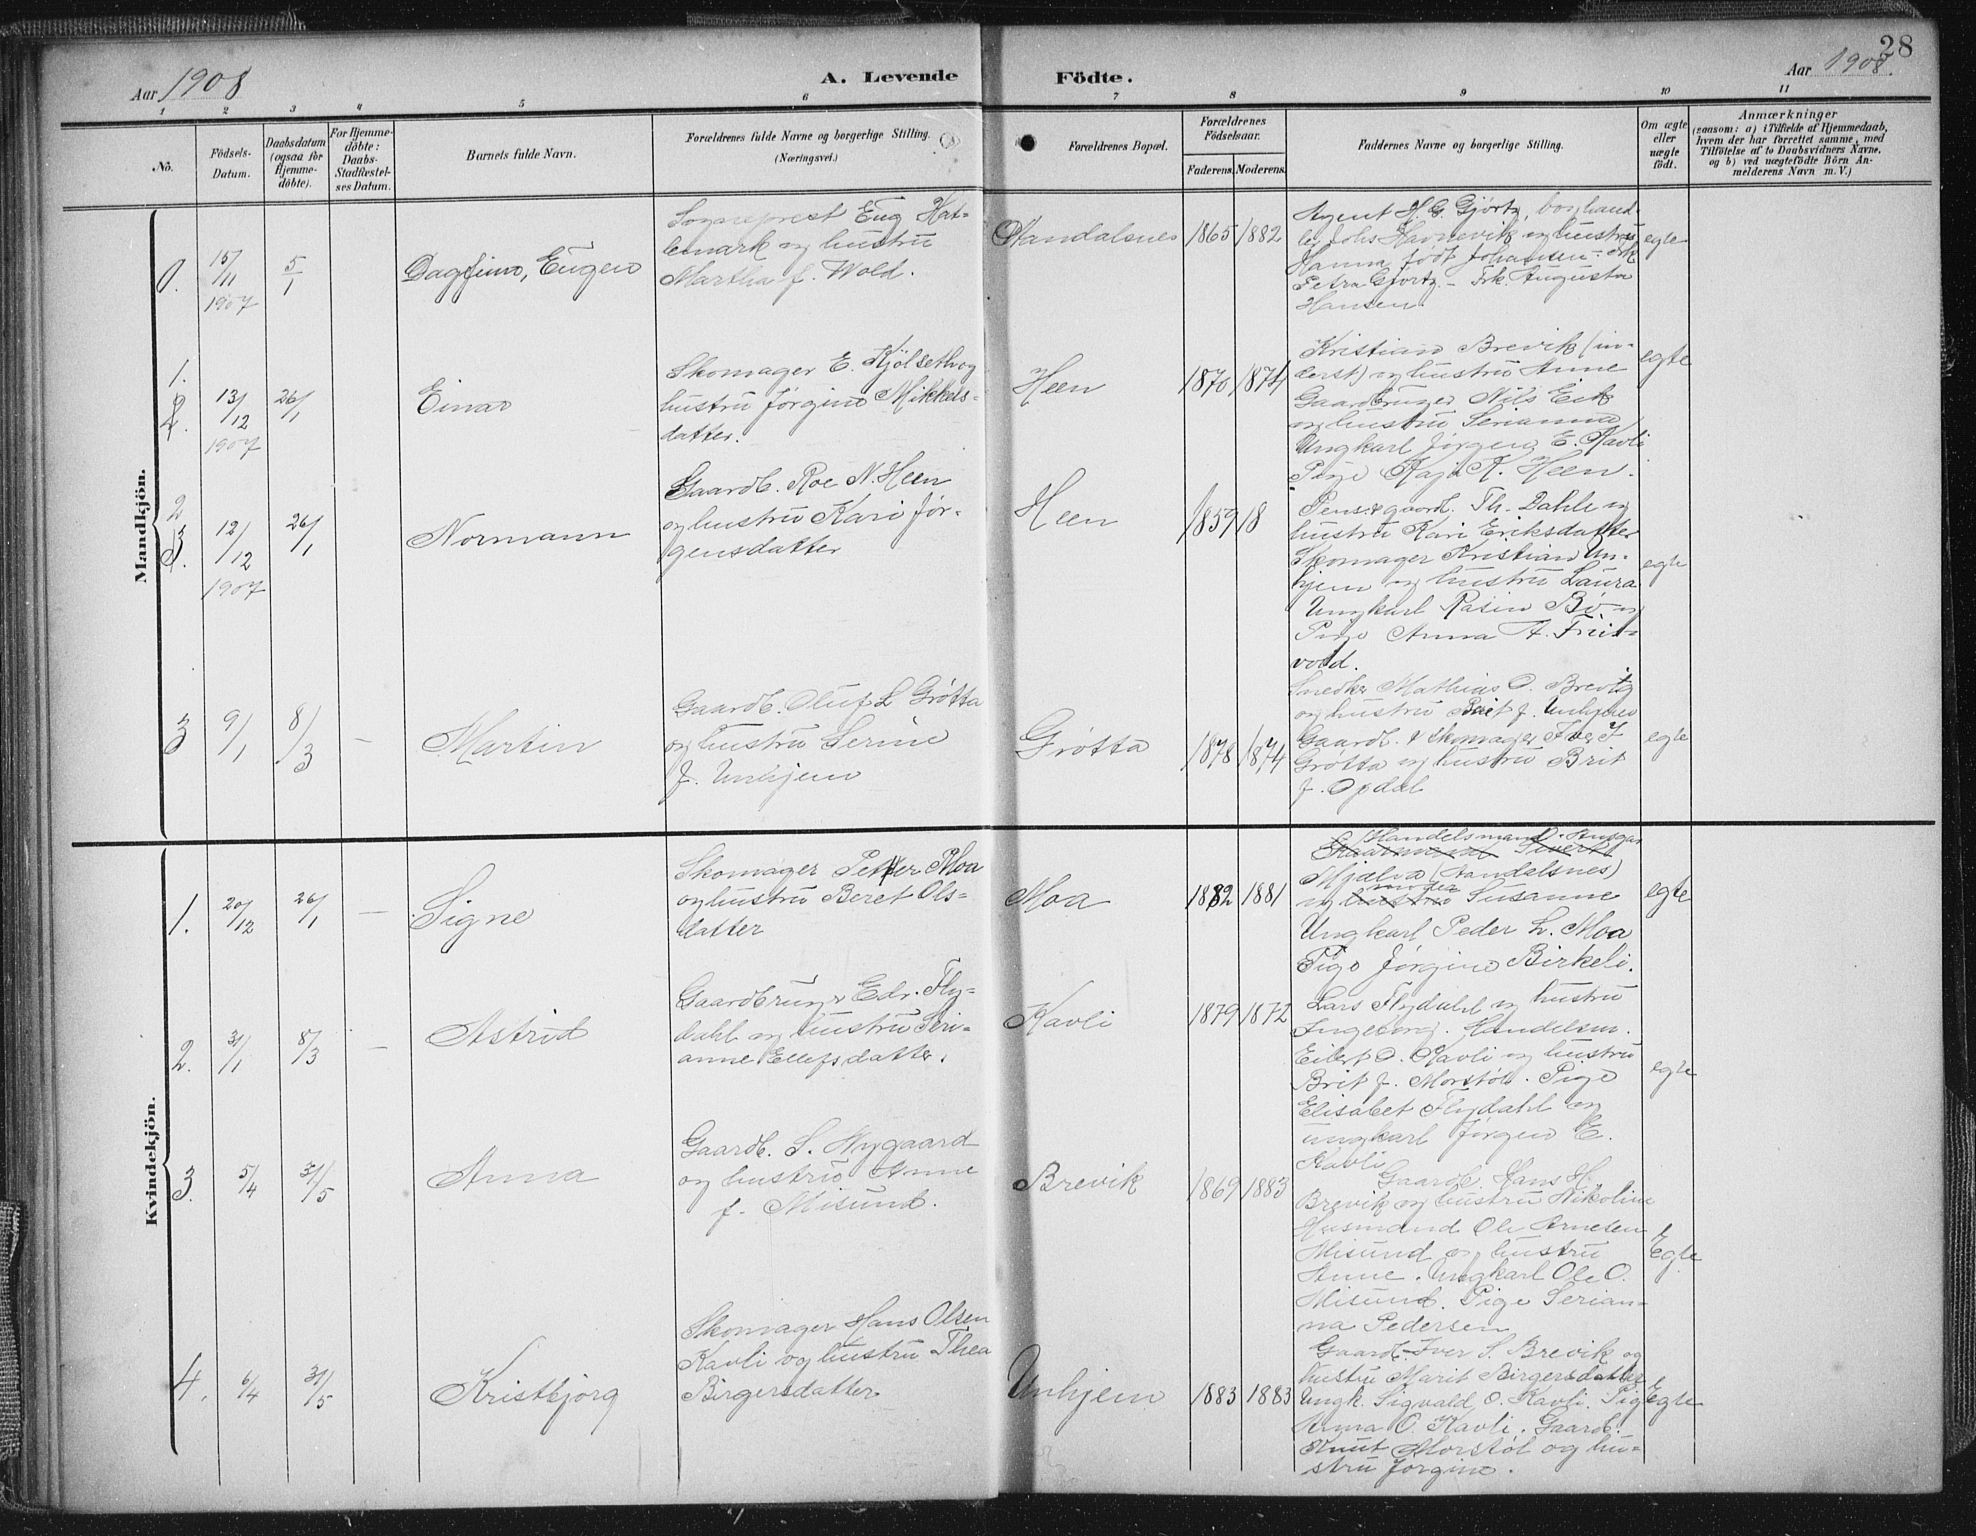 28
Aar 1908
A. Levende
Födte.
Aar 1908.
1 2 3 4 5 6 7 8 9 10 11
No.
Födsels-
Datum.
Daabsdatum
(ogsaa for
Hjemme-
döbte).
For Hjemme-
döbte:
Daabs-
Stadfæstel-
ses Datum.
Barnets fulde Navn.
Forældrenes fulde Navne og borgerlige Stilling.
(Næringsvei.)
Forældrenes Bopæl.
Forældrenes
Födselsaar.
Faderens. Moderens.
Faddernes Navne og borgerlige Stilling.
Om ægte
eller
uægte
födt.
Anmærkninger
(saasom: a) i Tilfælde af Hjemmedaab,
hvem der har forrettet samme, med
Tilföielse af to Daabsvidners Navne,
og b) ved uægtefödte Börn An-
melderens Navn m. V.)
Mandkjön.
1.
15/11
1907
5/1
Dagfinn, Eugen
Sogneprest Eug Hat-
lemark og hustru
Martha f. Wold.
Aandalsnes
1865 1882
Agent H. G. Gjörtz, boghand-
ler Johs Havnevik og hustru
Hanna född Johansen. Frk
Petra Gjörtz - Frk. Augusta
Hansen.
egte
1.
2.
13/12
1907
26/1
Einar
Skomager E. Kjölseth og
hustru Jörgine Mikkels-
datter.
Heen
1870 1874
Kristian Brevik (in-
derst) og hustru Anne
Gaardbruger Nils Eik
og hustru Serianna
Ungkarl Jörgen E. Kavli
Pige Raja A. Heen.
egte
2
3.
12/12
1907
26/1
Normann
Gaardb. Roe N. Heen
og hustru Kari Jör-
gensdatter
Heen
1859 18
Pens. & gaardb. Th. Dahle og
hustru Kari Eriksdatter
Skomager Kristian Un-
hjem og hustru Laura
Ungkarl Rasin Bö og
Pige Anna A. Freis-
vold.
egte
3
9/1
8/3
-
Martin
Gaardb. Oluf L Grötta
og hustru Serine
f. Unhjem
Grötta
1878 1874
Snedker Mathias O. Brevig
og hustru Brit f. Unhjem
Gaardb. & Skomager Iver I
Grötta og hustru Brit
f. Opdal
egte
Kvindekjön.
1.
20/12
26/1
-
Signe
Skomager Petter Moa
og hustru Beret Ols-
datter
Moa
1882 1881
Handelsmand O.
Sivert
Mjælva (Aandalsnes)
og hustru moder Susanne
Ungkarl Peder L. Moa
Pige Jörgine Birkeli.
egte
2.
31/1
8/3
-
Astrid
Gaardbruger Edv. Fly-
dahl og hustru Seri-
anne Ellefsdatter.
Kavli
1879 1872
Lars Flydahl og hustru
Ingeborg. Handelsm.
Eilert O. Kavli og hustru
Brit f. Morstöl. Pige
Elisabet Flydahl og
ungkarl Jörgen E.
Kavli
egte
3.
5/4
31/5
Anna
Gaardb. S. Nygaard
og hustru Anne
f. Misund.
Brevik
1869 1883
Gaardb. Hans H.
Brevik og hustru Nikoline
Husmand Ole Arnesen
Misund og hustru
Anne. Ungkarl Ole O.
Misund. Pige Serian-
na Pedersen
Egte
4.
6/4
31/5
Kristbjörg
Skomager Hans Olsen
Kavli og hustru Thea
Birgersdatter
Unhjem
1883 1883
Gaardb. Iver S. Brevik og
hustru Marit Birgersdatter
Ungk. Sigvald O. Kavli. Pige
Anna O. Kavli. Gaardb.
Knut Morstöl og hu-
stru Jörgine.
Egte